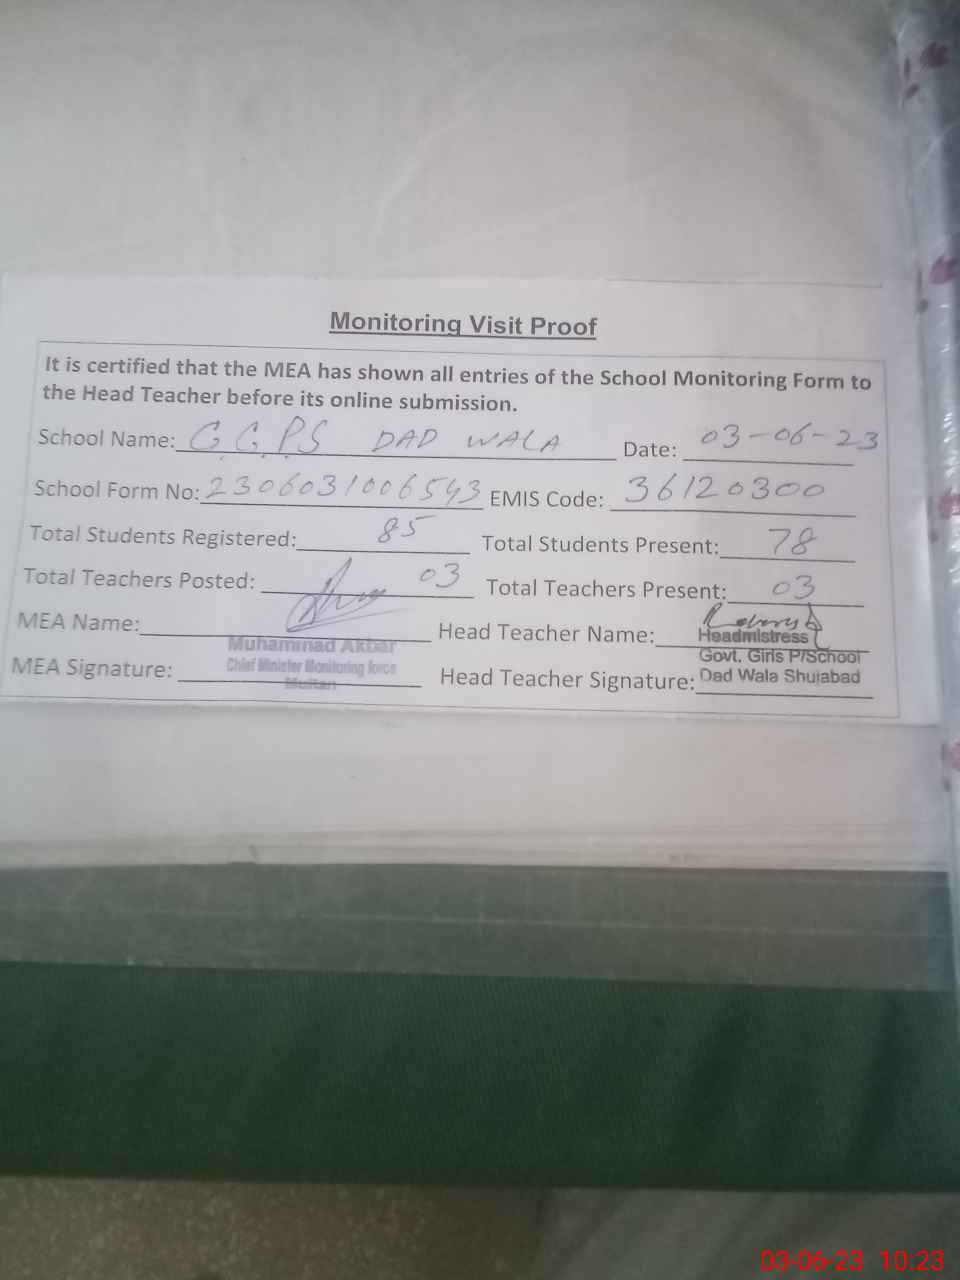 Monitoring Visit Proof
It is certified that the MEA has shown all entries of the School Monitoring Form to
the Head Teacher before its online submission.
School Name: G.G.P.S DAD WALA Date: 03-06-23
School Form No: 2306031006543 EMIS Code: 36120300
Total Students Registered: 85 Total Students Present: 78
Total Teachers Posted: 03 Total Teachers Present: 03
MEA Name: Head Teacher Name:
Muhammad Akbar Headmistress
Chief Minister Monitoring force Govt. Girls P/School
MEA Signature: Multan Head Teacher Signature: Dad Wala Shujabad
03-06-23 10:23